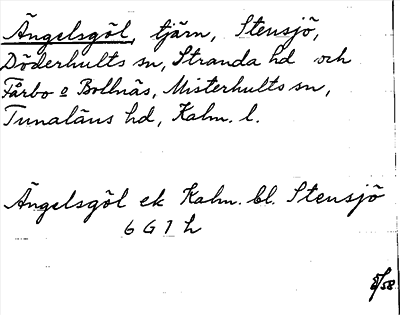 Ängelsgöl, tjärn, Stensjö,
Döderhults sn, Stranda hd och
Fårbo o Bollnäs, Misterhults sn,
Tunaläns hd, Kalm. l.
Ängelsgöl ek Kalm. bl. Stensjö
6 G 7 h
8/58